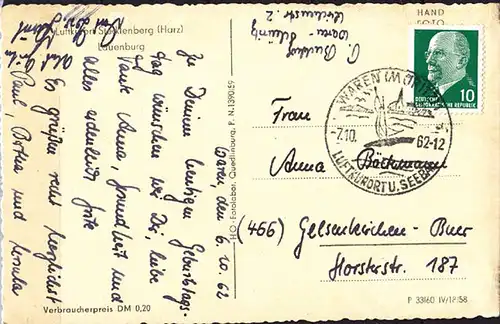 Luftkurort Stecklenberg (Harz)
Lauenburg
Waren, den 6.10.62
Zu Deinem heutigen Geburtstag
wünschen wir Dir, liebe
Tante Anna, Gesundheit und
alles erdenklich Gute
Es grüßen recht herzlichst
Paul, Bertha und
Verbraucherpreis DM 0,20
HO - Fotolabor, Quedlinburg, P. N. 1390/59
HAND
FOTO
DEUTSCHE
DEMOKRATISCHE REPUBLIK
10
WAREN (MÜRITZ)
-7.10. 62-12
LUFTKURORT U. SEEBAD
Frau
Anna Böckmann
(466) Gelsenkirchen - Buer
Horsterstr. 187
P 33/60 IV/18/58